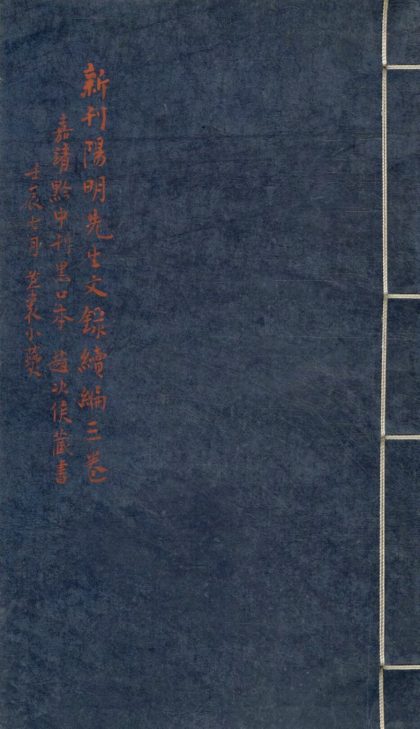 新刊陽明先生文錄續編三卷
嘉靖黔中刊黑口本 趙次侯藏書
壬辰七月 芷衷小燹